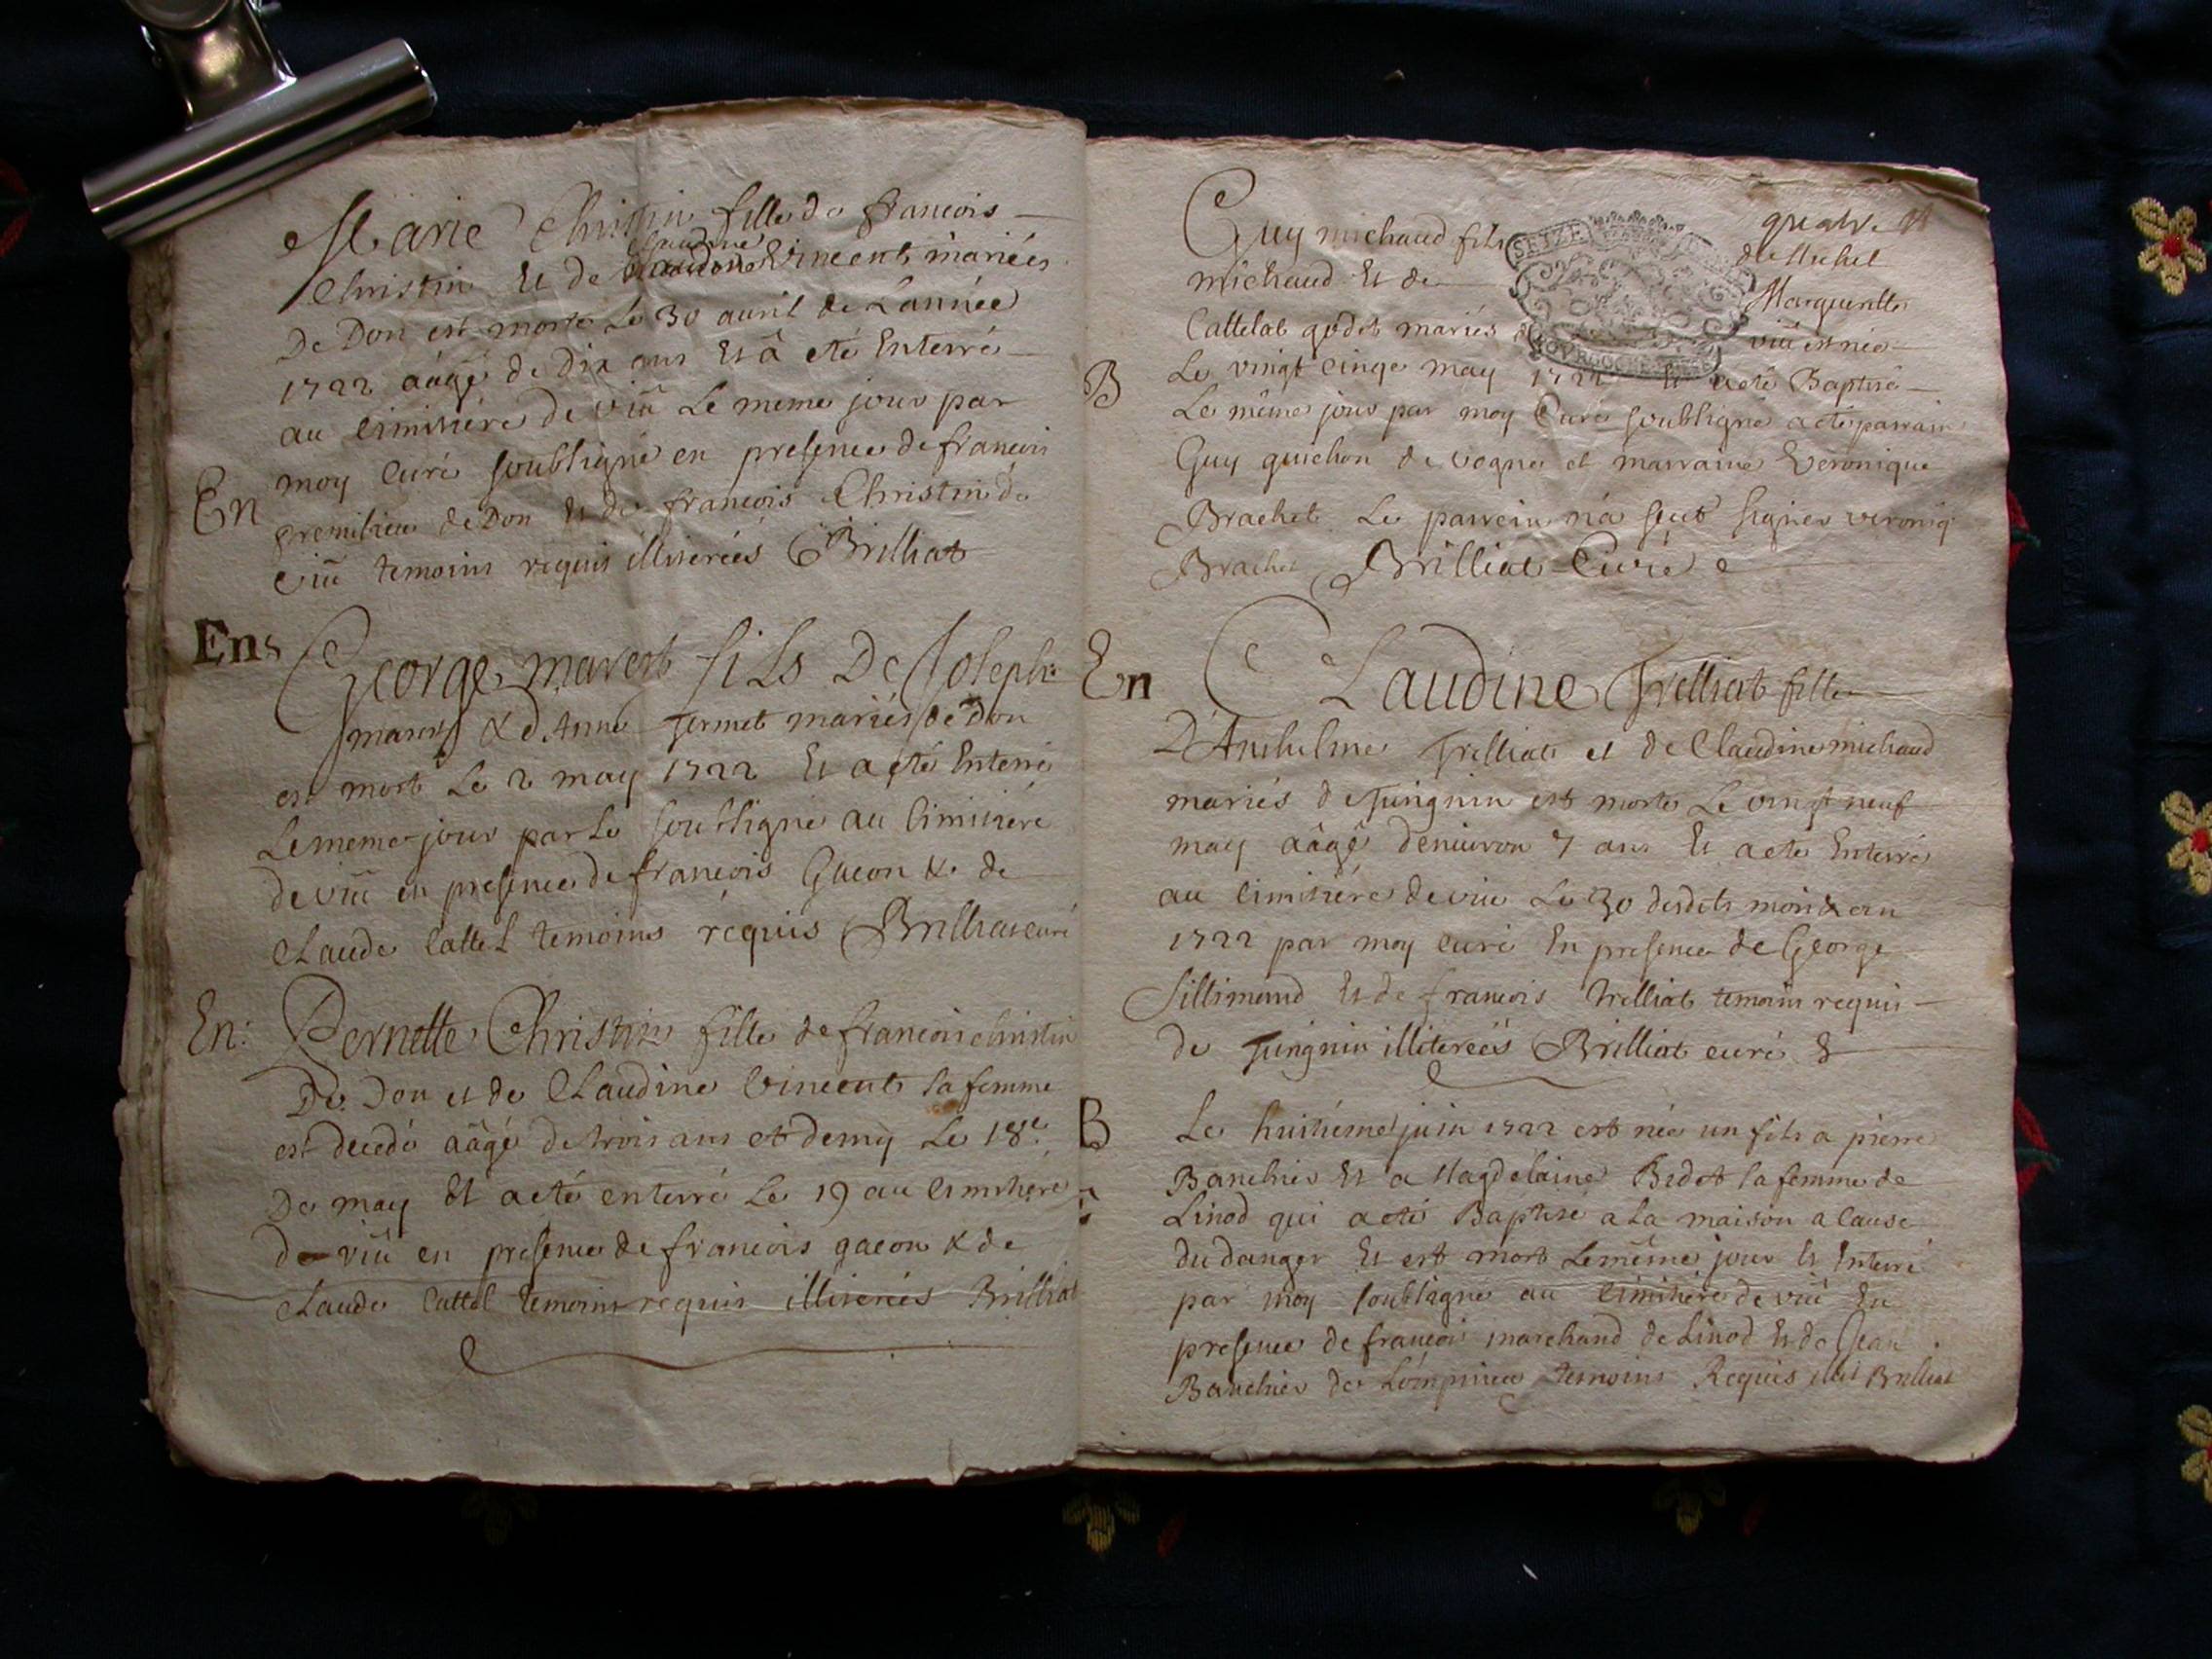 Marie Christin fille de francois
Christin Et de Claudine Vincent mariés
De Don est morte Le 30 auril de L'année
1722 aâgé de Dix ans Et â eté Enterré
au cimitiére de viü Le meme jour par
moy curé soubsigné en presence de francois
En
premilieu de Don Et de francois Christin de
viü temoins requis illiterées Brilliat
Ens
George marest fils De Joseph
marest & d'Anne Termet mariés de Don
est mort Le 2 may 1722 Et a eté Enterré
Le meme jour par Le soubsigné au Cimitiére
de viü en presence de francois Gueon & de
Claude Cattel temoins réquis Brilliat curé
En: Pernette Christin fille de francois christin
De Don et de Claudine Vincent sa femme
est decedé aâgé de trois ans et demy Le 18e
De may Et a eté enterré Le 19 au cimitiére
de viü en presence de francois gueon & de
Claude Cattel temoins requis illiterées Brilliat
quatre
Guy michaud fils de Michel
michaud Et de Margueritte
Cattelat godet mariés viü est née
Le vingt cinqe may 1722 Et a eté Baptisé
B
Le même jour par moy Curé soubsigné a eté parrain
Guy guichon de vogne et marraine Veronique
Brachet Le parrein n'a sçeut signer veroniq
Brachet Brilliat Curé
En
CLaudine Trelliat fille
D'Anthelme Trelliat et de Claudine michaud
mariés de Tuingnin est morte Le vingt neuf
may aâgé d'enuiron 7 ans Et a eté Enterré
au cimitiére de viu Le 30 desdits mois & an
1722 par moy curé En presence de George
Sillimand Et de francois Trelliat temoins requis
de Tuingnin illiterées Brilliat curé
B
Le huitiéme juin 1722 est née un fils a pierre
Banchier Et a Magdelaine Bidot sa femme de
Linod qui a eté Baptisé a La maison a cause
du danger Et est mort Le même jour Et Enterré
par moy soubsigné au cimitiére de viü En
presence de francois marchand de Linod Et de Jean
Banchier de Lompnieu temoins Requis illit Brilliat